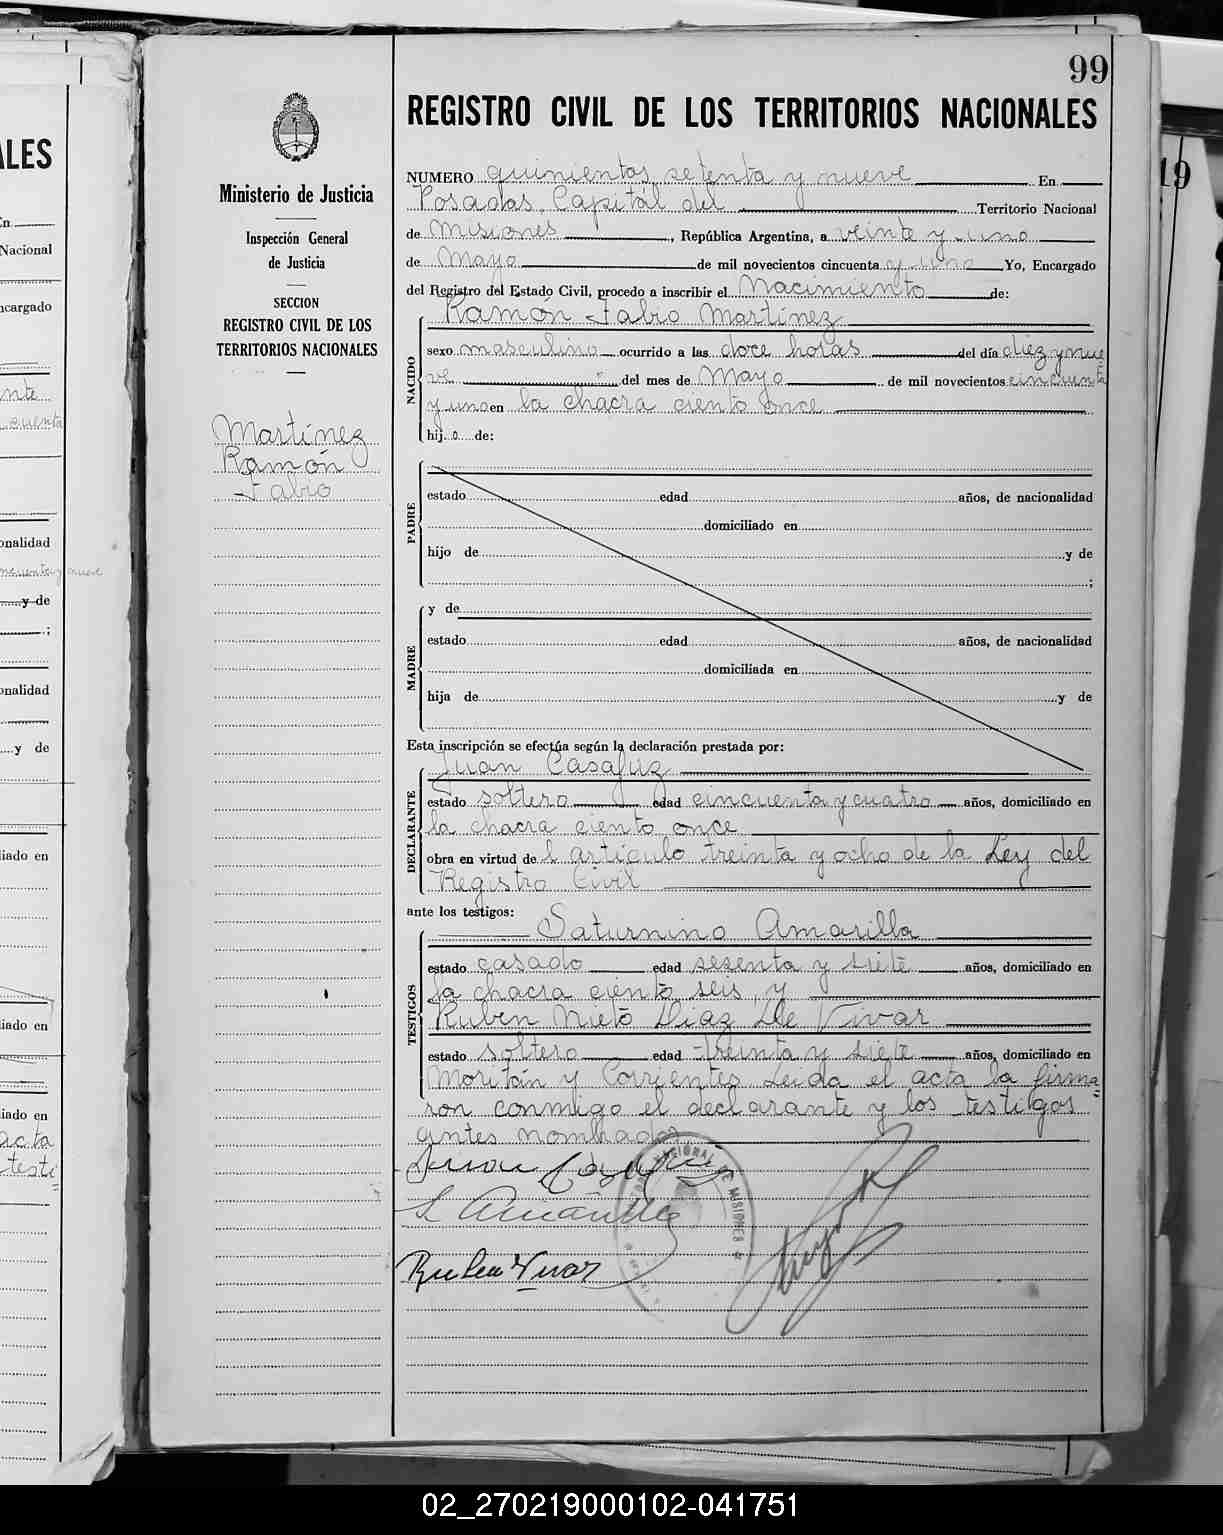 99
REGISTRO CIVIL DE LOS TERRITORIOS NACIONALES
Ministerio de Justicia
Inspección General
de Justicia
SECCION
REGISTRO CIVIL DE LOS
TERRITORIOS NACIONALES
Martínez
Ramón
Fabio
NUMERO quinientos setenta y nueve En
Posadas, Capital del Territorio Nacional
de Misiones, República Argentina, a veinte y uno
de Mayo de mil novecientos cincuenta y uno Yo, Encargado
del Registro del Estado Civil, procedo a inscribir el Nacimiento de:
Ramón Fabio Martínez
NACIDO
sexo masculino ocurrido a las doce horas del día diez y nue
ve del mes de Mayo de mil novecientos cincuenta
y uno en la chacra ciento once
hijo de:
PADRE
estado edad años, de nacionalidad
domiciliado en
hijo de y de
;
MADRE
y de
estado edad años, de nacionalidad
domiciliada en
hija de y de
Esta inscripción se efectúa según la declaración prestada por:
DECLARANTE
Juan Casafuz
estado soltero edad cincuenta y cuatro años, domiciliado en
la chacra ciento once
obra en virtud del artículo treinta y ocho de la Ley del
Registro Civil
ante los testigos:
TESTIGOS
Saturnino Amarilla
estado casado edad sesenta y siete años, domiciliado en
la chacra ciento seis, y
Ruben Nieto Diaz De Vivar
estado soltero edad treinta y siete años, domiciliado en
Moritán y Corrientes Leida el acta la firma=
ron conmigo el declarante y los testigos
antes nombrados
Juan Casafuz
S Amarilla
Ruben Vivar
NACIONAL DE MISIONES
ALES
Nacional
ncargado
onalidad
y de
;
onalidad
y de
iado en
iado en
iado en
acta
testi=
19
02_270219000102-041751